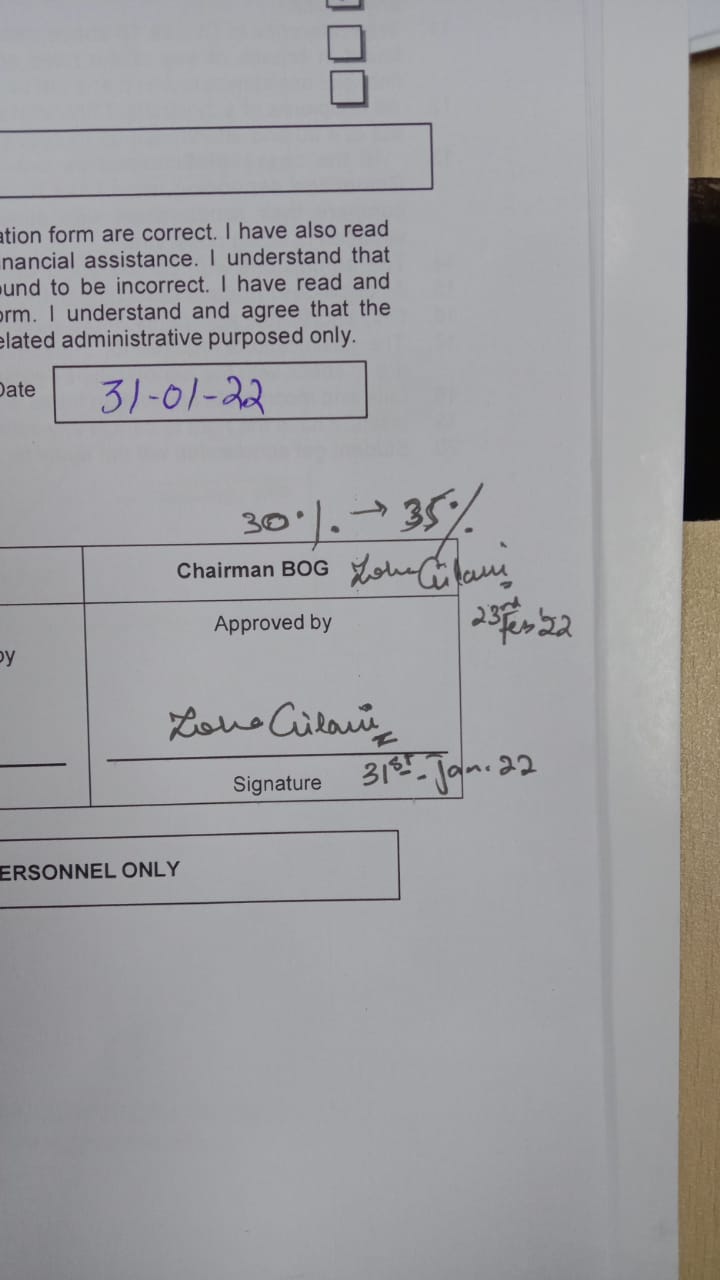 ation form are correct. I have also read
nancial assistance. I understand that
ound to be incorrect. I have read and
orm. I understand and agree that the
elated administrative purposed only.
Date 31-01-22
30% → 35%
Chairman BOG
23rd Feb '22
Approved by
by
31st - Jan. 22
Signature
ERSONNEL ONLY